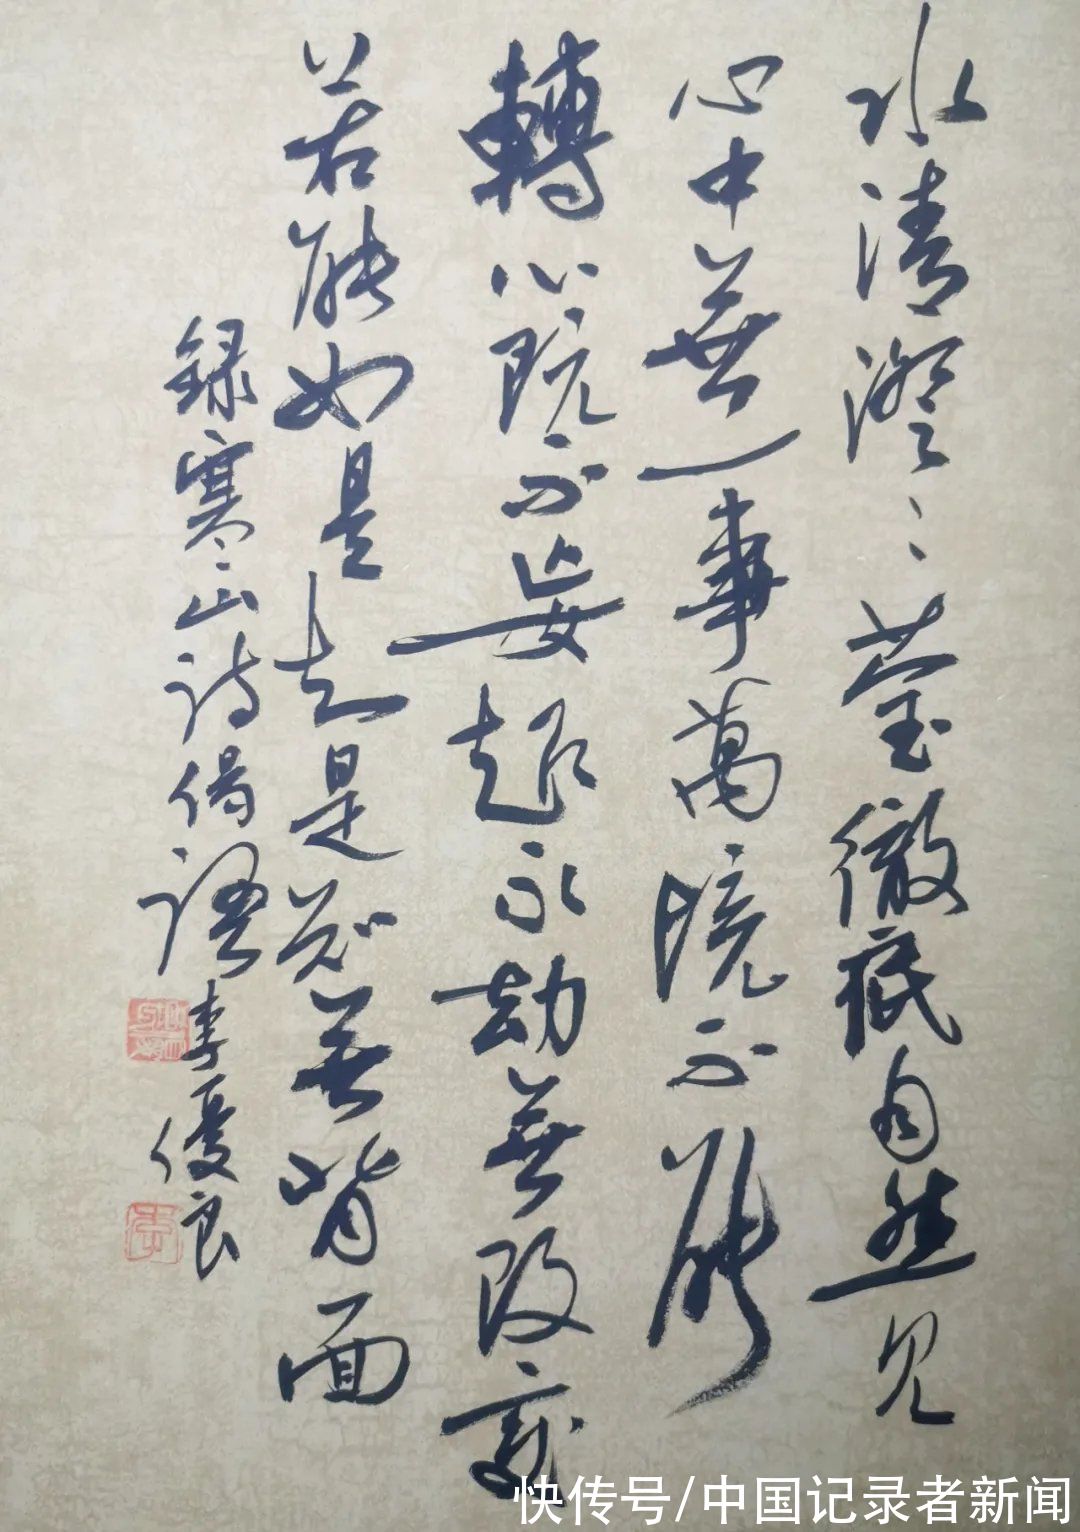 水清澄々瑩徹底自然見
心中無一事萬境不能
轉心既不妄起永劫無改變
若能如是知是知無背面
録寒山詩偈語李優良
快传号/中国记录者新闻